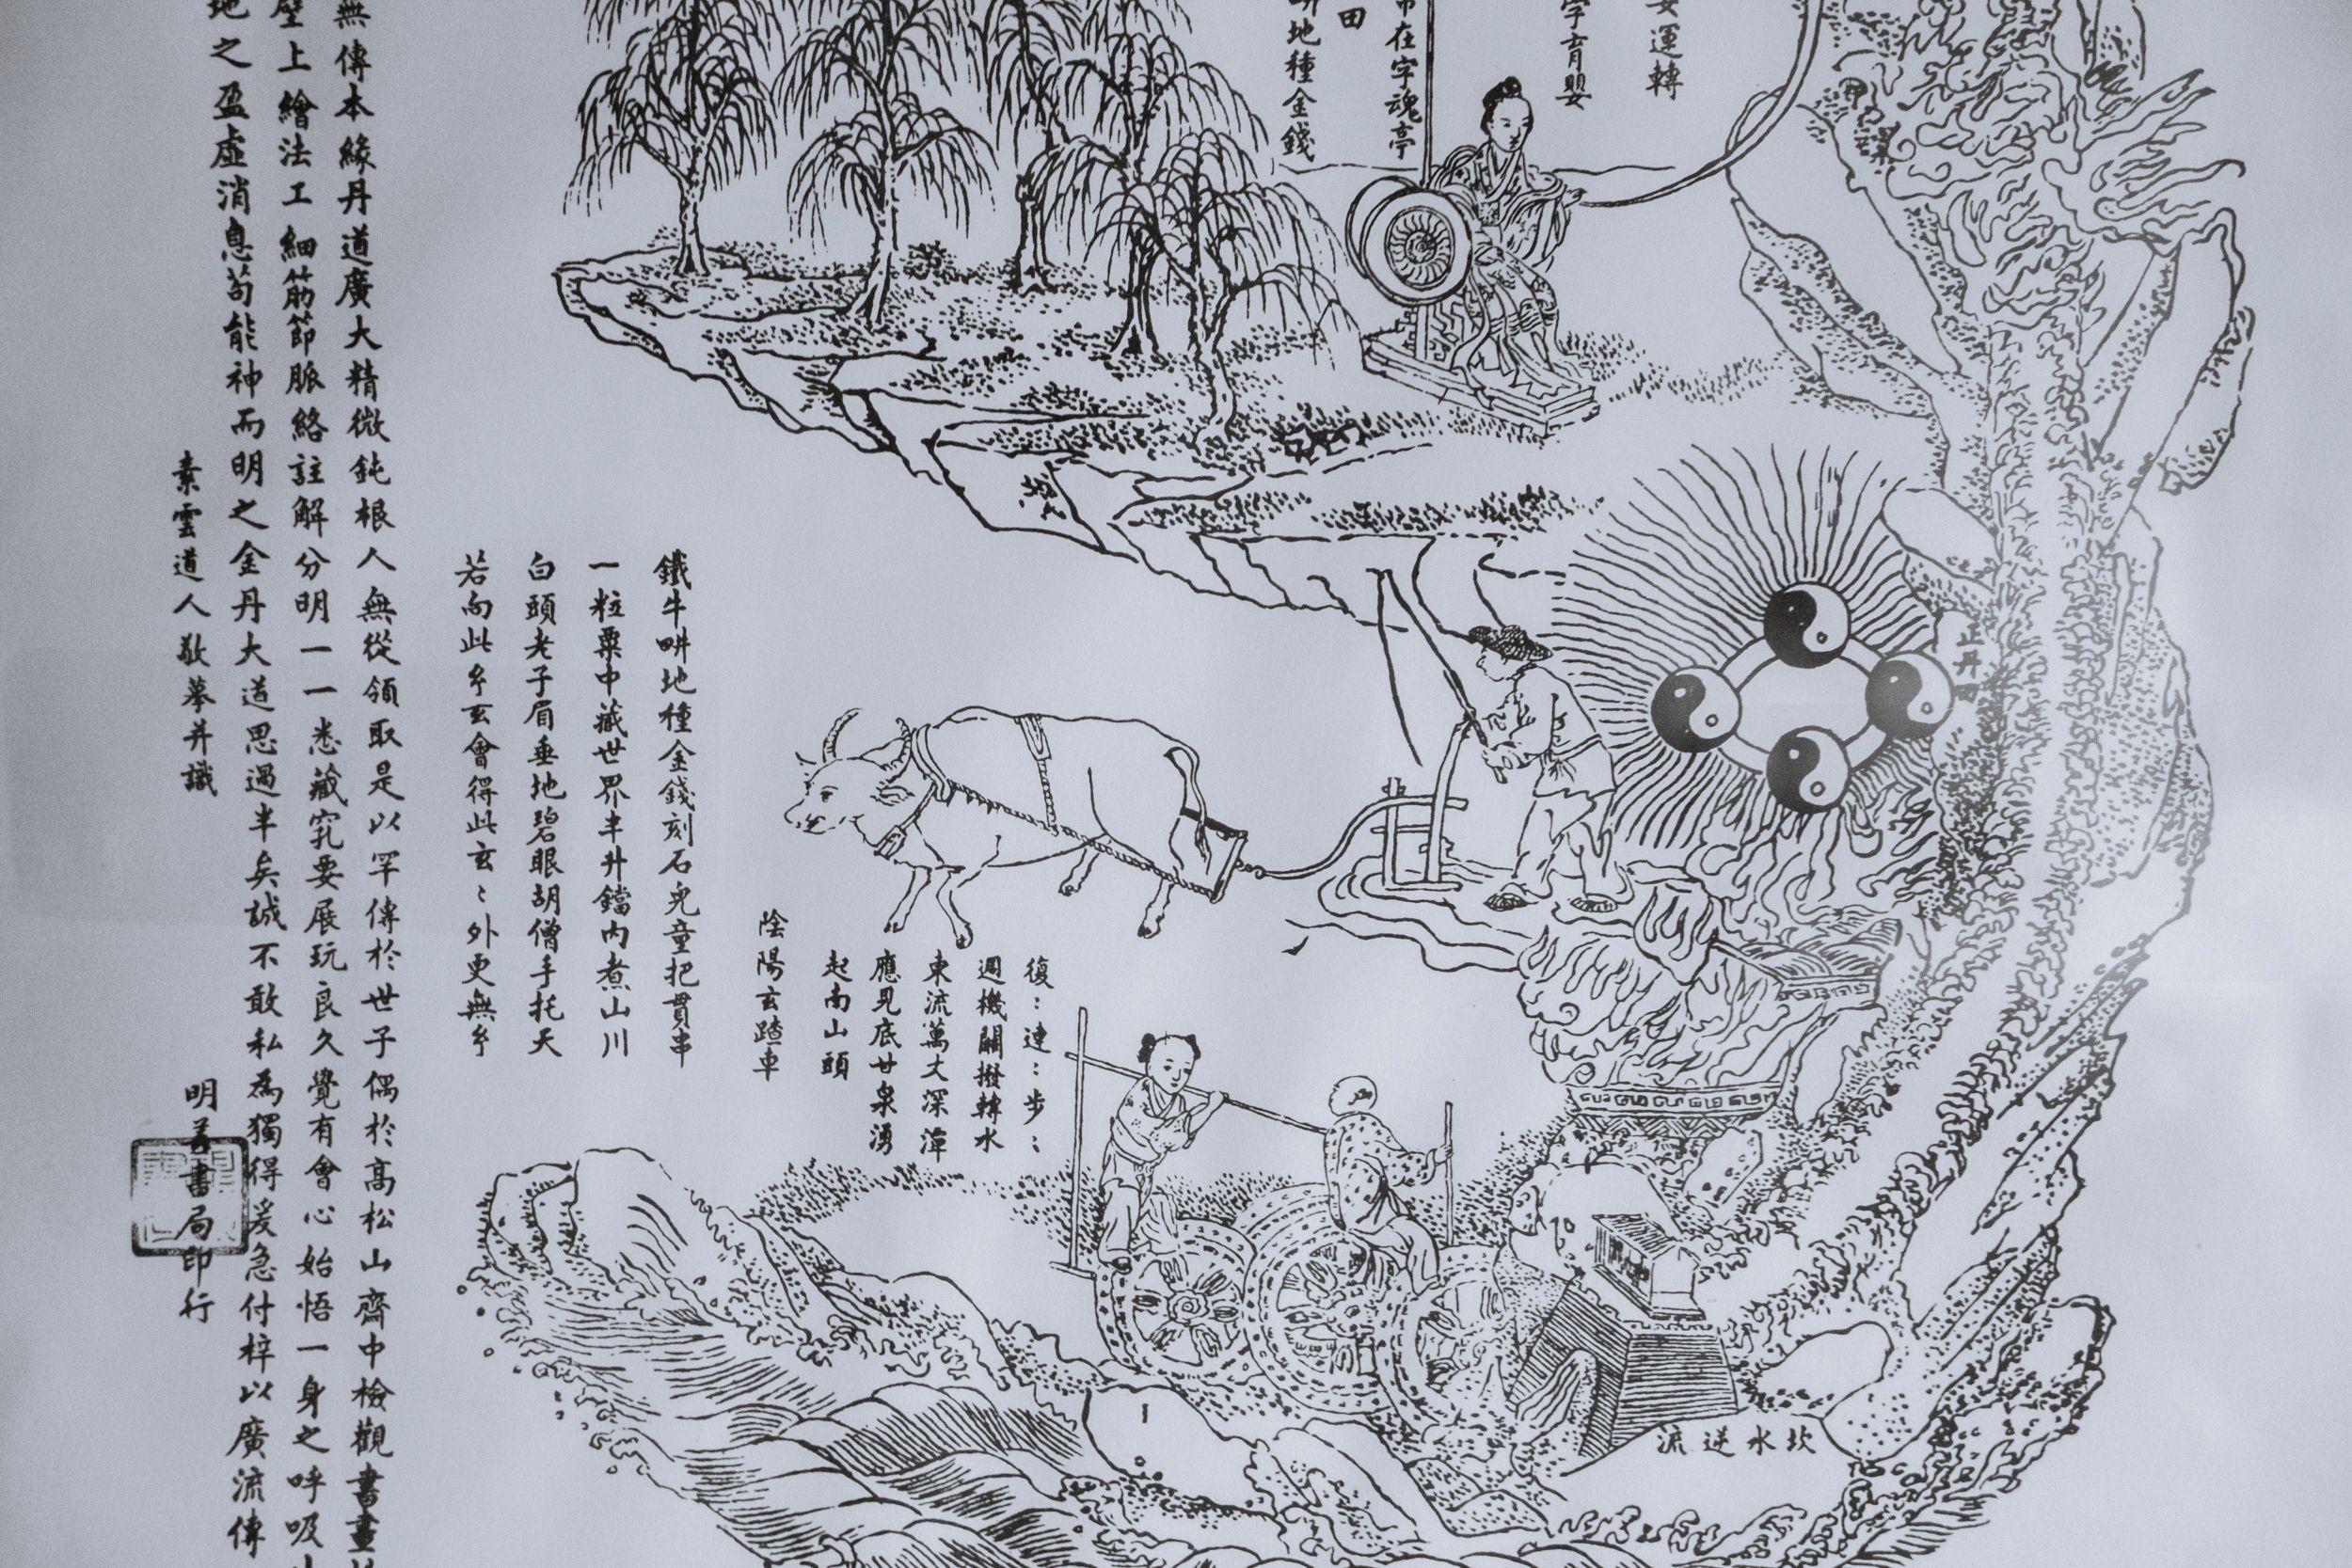 女運轉
字育嬰
常在字魂亭
田
畊地種金錢
正丹田
復〻連〻步〻
週機關撥轉水
東流萬丈深潭
應見底甘泉湧
起南山頭
陰陽玄踏車
坎水逆流
鐵牛畊地種金錢刻石兒童把貫串
一粒粟中藏世界半升鐺內煮山川
白頭老子眉垂地碧眼胡僧手托天
若向此玄玄會得此玄〻外更無玄
無傳本緣丹道廣大精微鈍根人無從領取是以罕傳於世予偶於高松山齋中檢觀書畫
壁上繪法工細筋節脈絡註解分明一一悉藏竅要展玩良久覺有會心始悟一身之呼吸
地之盈虛消息苟能神而明之金丹大道思過半矣誠不敢私為獨得爰急付梓以廣流傳
素雲道人敬摹并識
明善書局印行